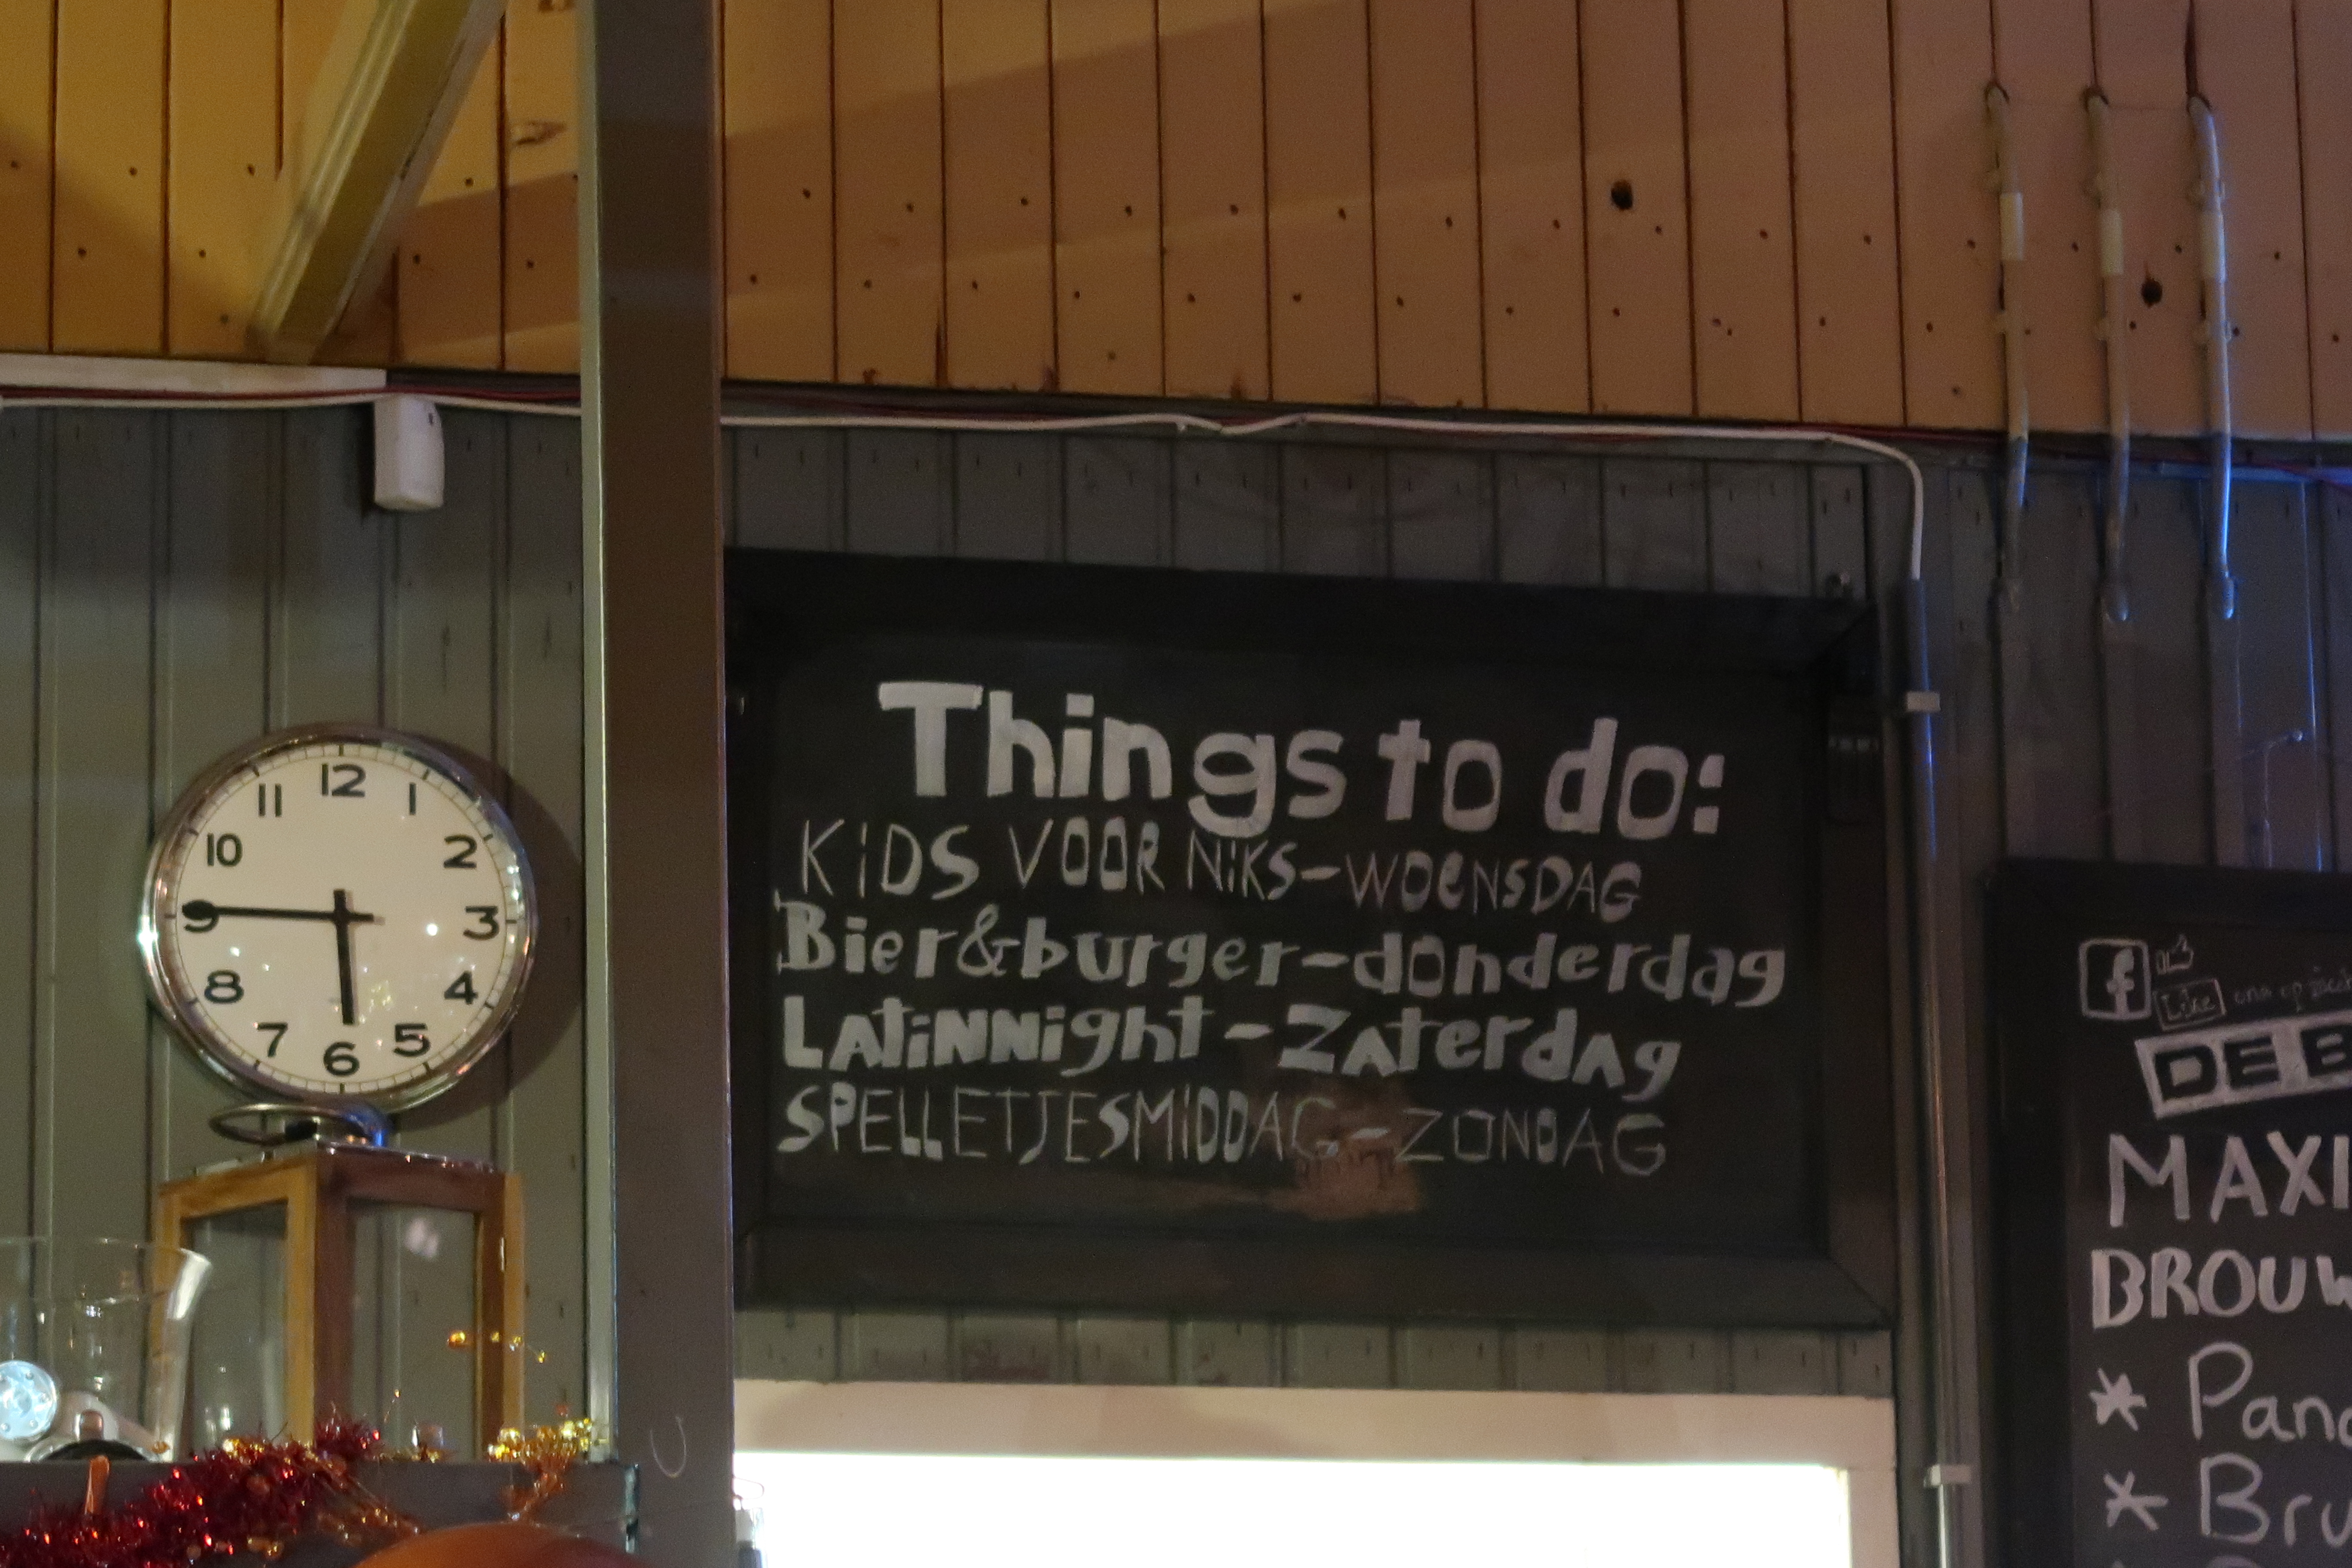 12
11 1
10 2
9 3
8 4
7 5
6
Things to do:
KIDS VOOR NIKS-WOENSDAG
Bier&burger-donderdag
LATINNight-ZATERDAG
SPELLETJESMIDDAG-ZONDAG
f
Like ons op
DE B
MAXI
BROUW
* Pan
* Bru